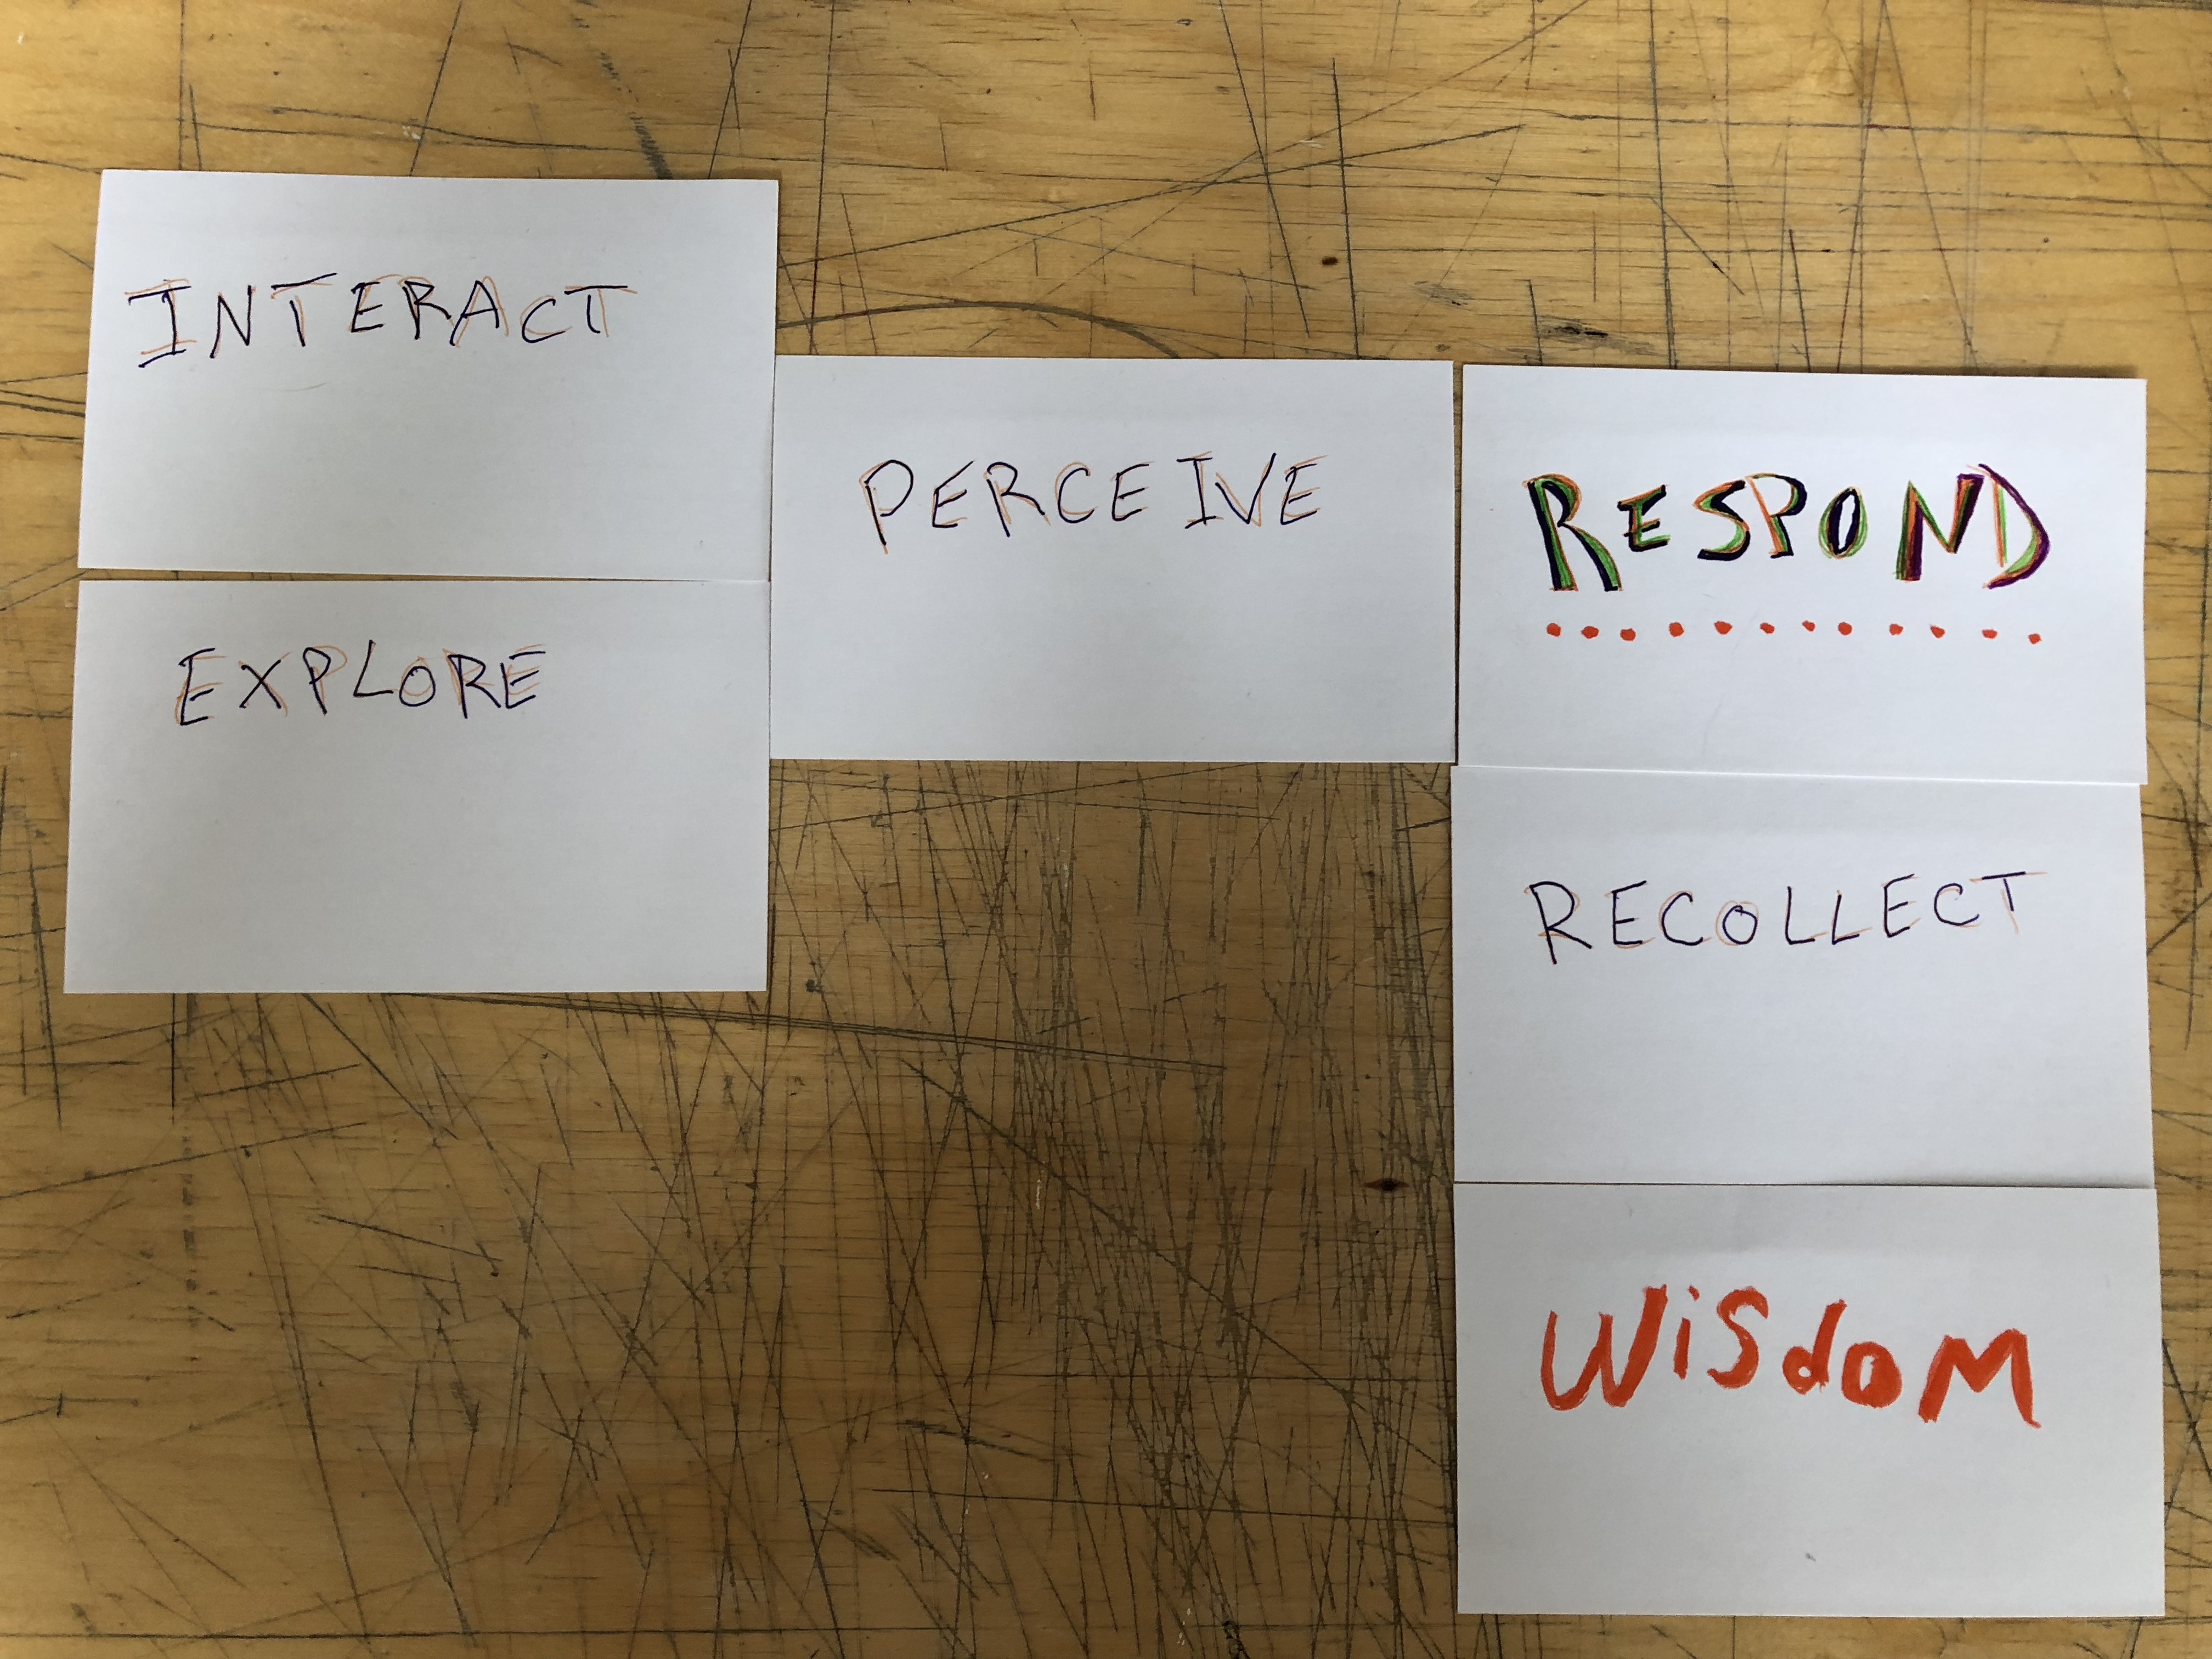 INTERACT
EXPLORE
PERCEIVE
RESPOND
RECOLLECT
WisdoM